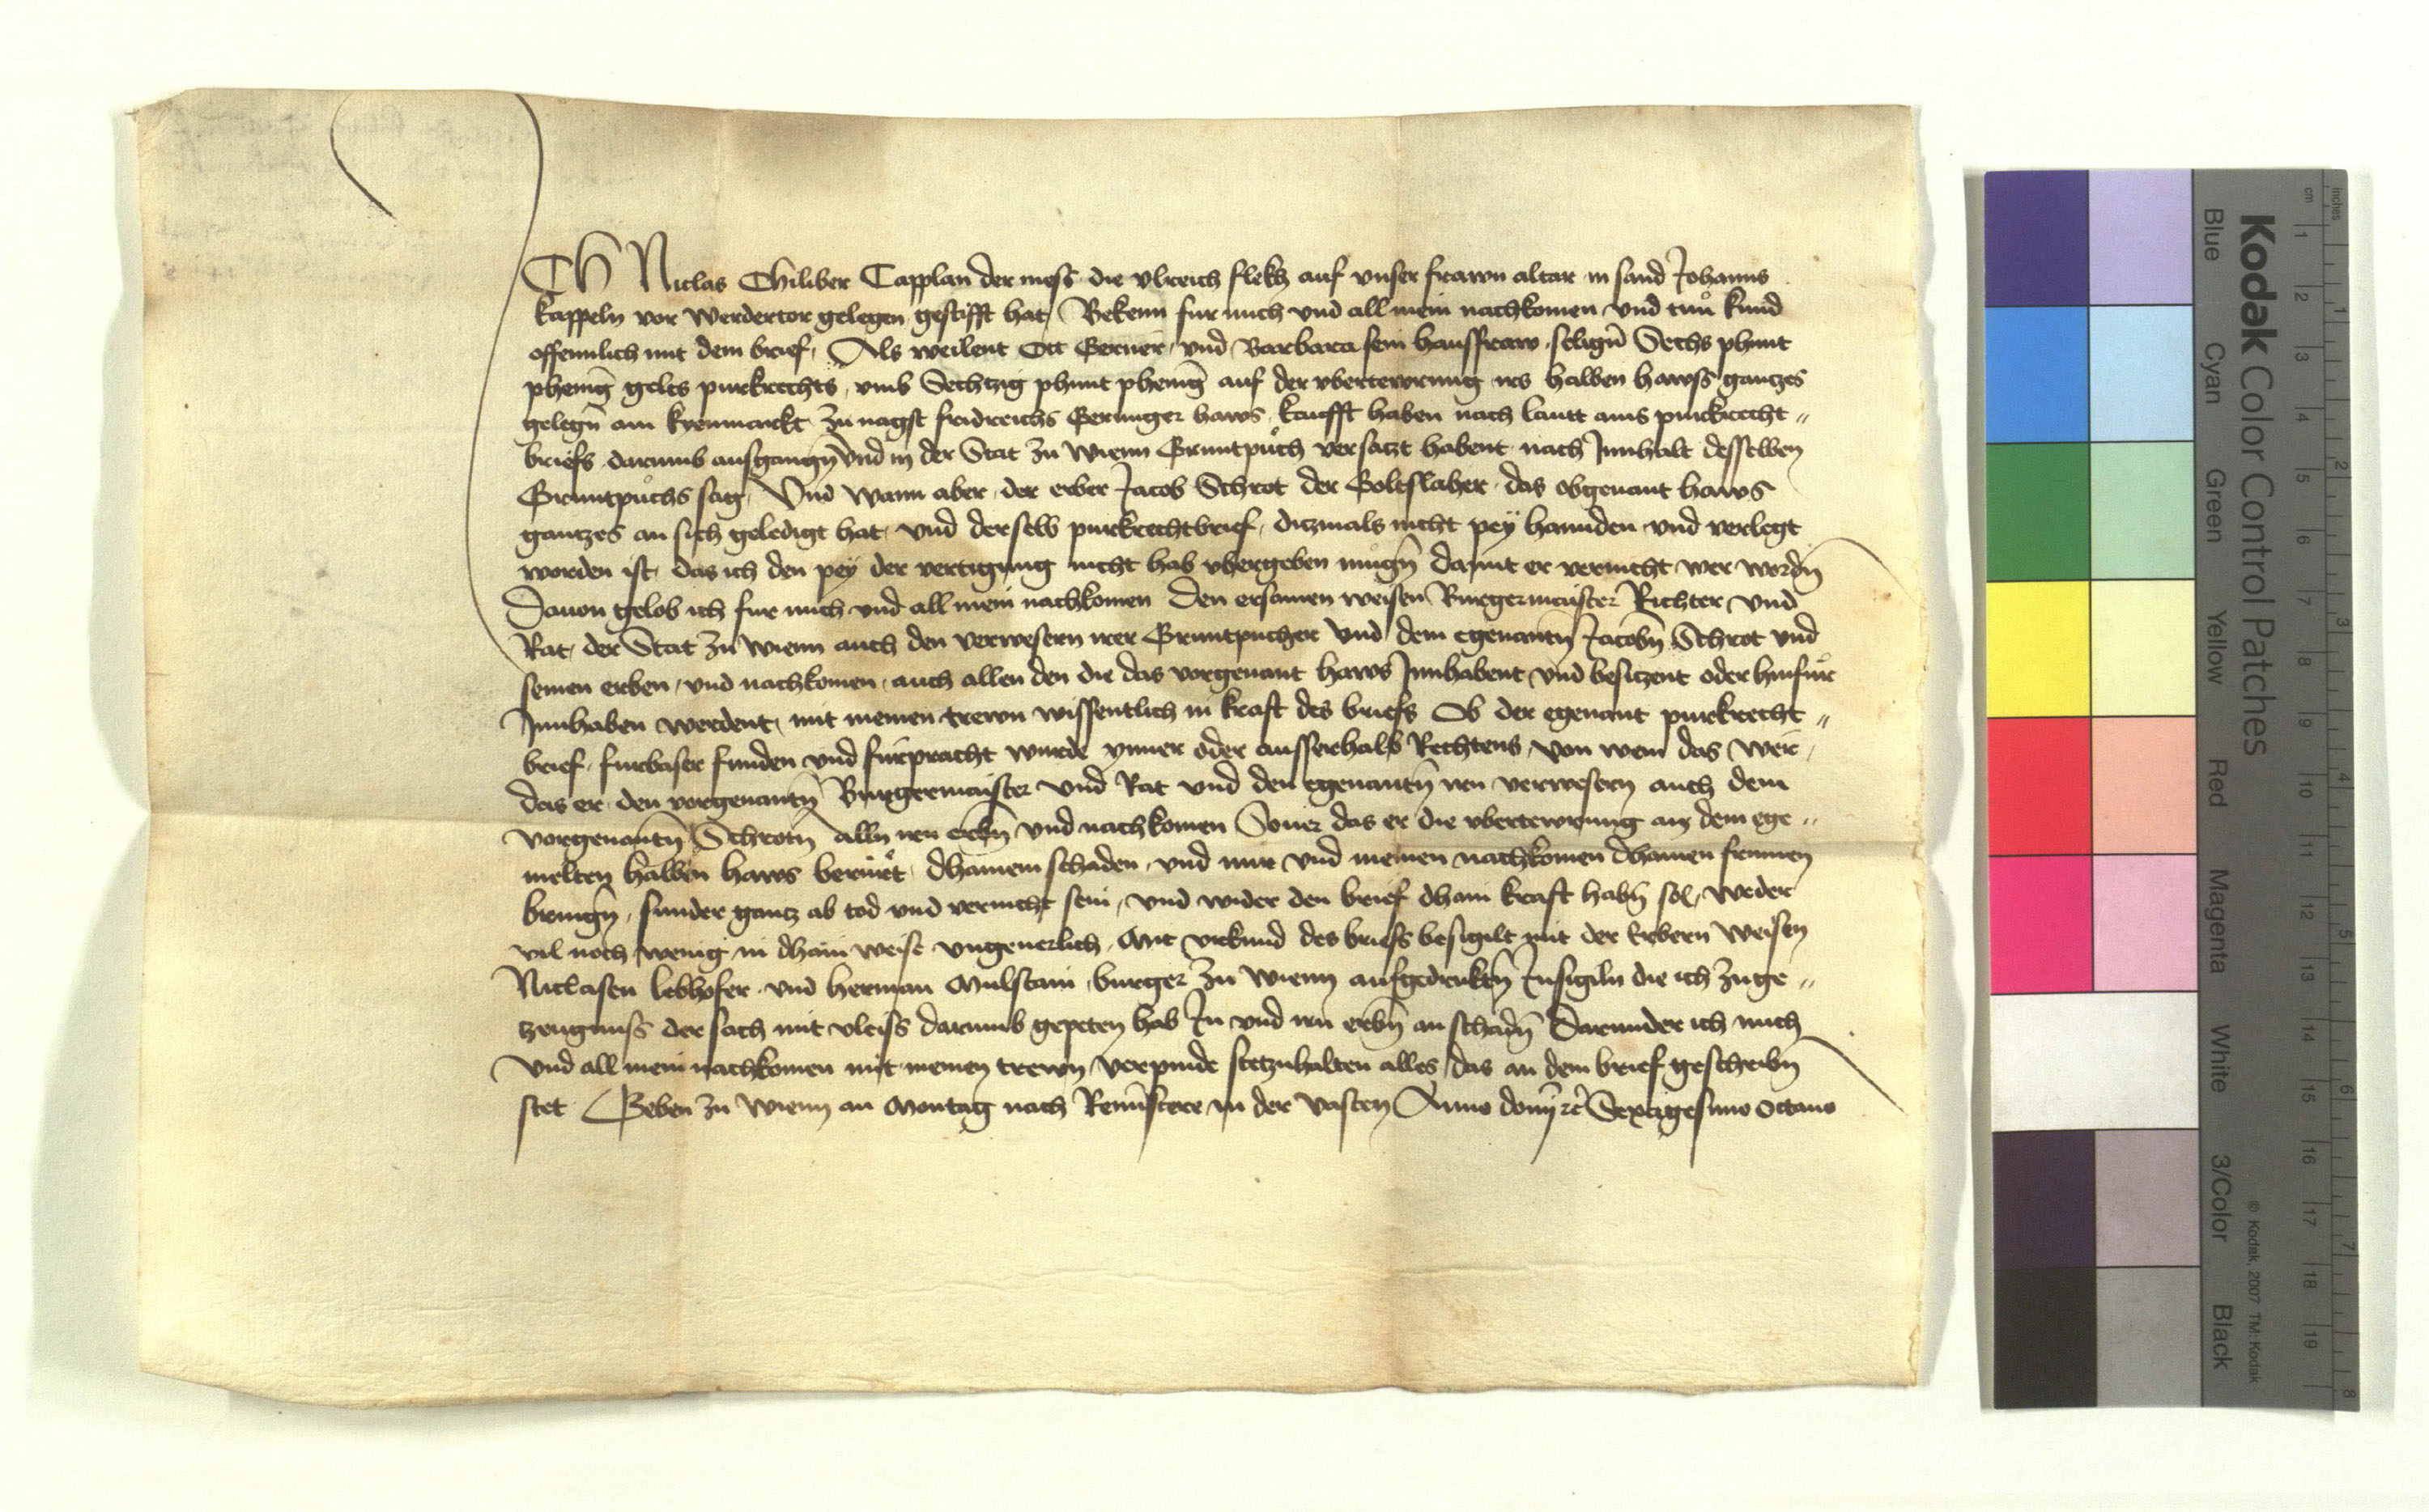 Ich Niclas Chiliber Capplan der mess die Vlreich flekh auf vnser frawn altar in sand Johanns
kappeln vor Werdertor gelegen gestifft hat Bekenn fur mich vnd all mein nachkomen vnd tun kund
offennlich mit dem brief, Als weilent Ott Gerner vnd Barbara sein hausfraw seligñ Sechs phunt
phenīg gelts purkrechts, vmb Sechtzig phunt phenīg auf der vbertewrung irs halben hawss gantzes
gelegñ am kyenmarckt zu nagst fridreichs Geringer haws, kaufft haben nach lautt ains purkrecht //
briefs darumb ausgangñ vnd in der Stat zu Wienn Gruntpůch versatzt habent nach Innhalt desselben
Gruntpůchs sag, Vnd wann aber der erber Jacob Schrot der Goltslaher das obgenant haws
gantzes an sich geledigt hat vnd derselb purkrechtbrief, ditzmals nicht pey hannden vnd verlegt
worden ist, das ich den pey der vertigung nicht hab vbergeben mügñ damit er vernicht wer wordñ
Dauon gelob ich fur mich vnd all mein nachkomen den ersamen weisen Burgermaister Richter vnd
Rat, der Stat zu Wienn auch den verwesern irer Gruntpucher vnd dem egenantñ Jacobñ Schrot vnd
seinen erben, vnd nachkomen, auch allen den die das vorgenant haws Innhabent vnd besitzent oder hinfůr
Innhaben werdent, mit meinen trewn wissentlich in kraft des briefs Ob der egenant purkrecht //
brief, furbaser funden vnd fürpracht wurde ynner oder ausserhalb Rechtens von wem das wer,
das er den vorgenantñ Burgermaister vnd Rat vnd den egenantñ irn verwesern auch dem
vorgenantñ Schrotñ allñ irn erbñ vnd nachkomen Souer das er die vbertewrung an dem ege //
melten halben haws berürt, dhainem schaden, vnd mir vnd meinen nachkomen dhainen frumen
bringñ, sunder gantz ab tod vnd vernicht sein, vnd wider den brief dhain kraft habñ sol, weder
vil noch wenig in dhain weise vngeuerlich, Mit vrkund des briefs besigilt mit der Erbern weisen
Niclasen lebhofer vnd Herman Mulstain, burger zu Wienn aufgedruktñ Insigiln die ich zuge //
zeugnuss der sach mit vleiss darumb gepeten hab In vnd irn erbñ an schadñ Darunder ich mich
vnd all mein nachkomen mit meinen trewn verpinde stetzuhalten alles das an dem brief geschribñ
stet Geben zu Wienn an Montag nach Reminiscere in der vasten Anno domī etc Sexagesimo Octauo
Kodak Color Control Patches
© Kodak, 2007 TM: Kodak
Blue Cyan Green Yellow Red Magenta White 3/Color Black
cm 1 2 3 4 5 6 7 8 9 10 11 12 13 14 15 16 17 18 19
inches 1 2 3 4 5 6 7 8